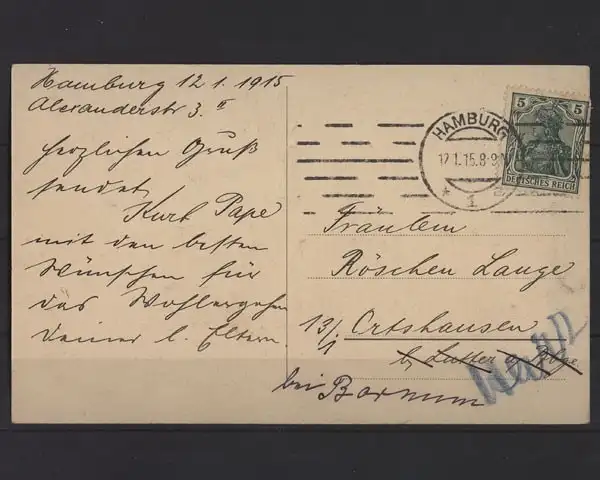 Hamburg 12.1.1915
Alexanderstr 3. II
herzlichen Gruß
sendet
Kurt Pape
mit den besten
Wünschen für
das Wohlergehen
deiner l. Eltern.
HAMBURG
12.1.15.8-9
* 1
5 5
DEUTSCHES REICH
Fräulein
Röschen Lange
13/1 Ortshausen
b/ Lutter a/ Bbge
bei Bornum